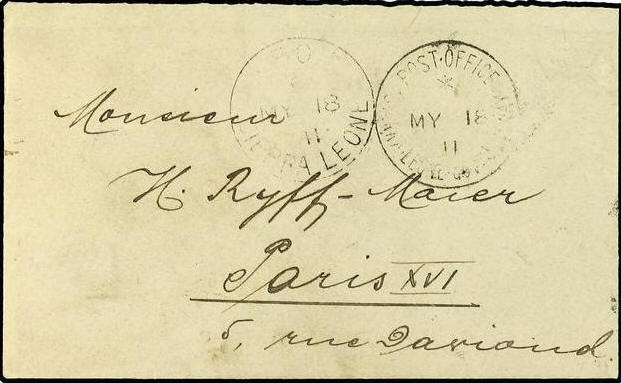 G.P.O.
MY 18
11
SIERRA LEONE
POST·OFFICE
MY 18
11
Monsieur
H. Ryff-Maier
Paris XVI
5, rue Davioud.